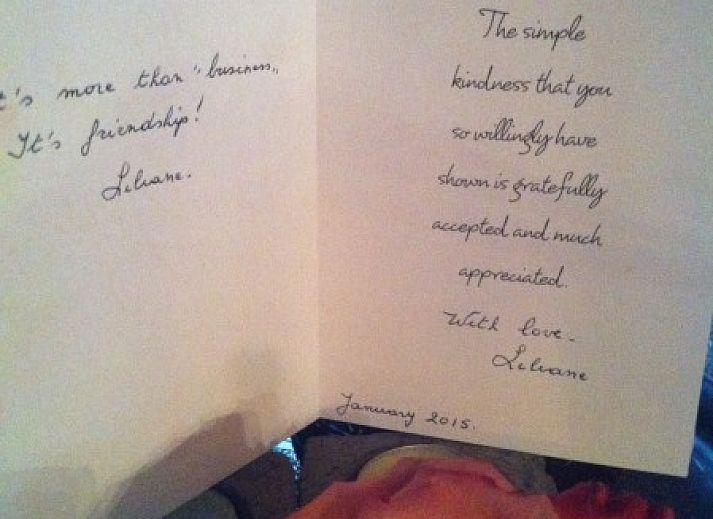 It's more than "business"
It's friendship!
Liliane.
The simple
kindness that you
so willingly have
shown is gratefully
accepted and much
appreciated.
With love.
Liliane
January 2015.